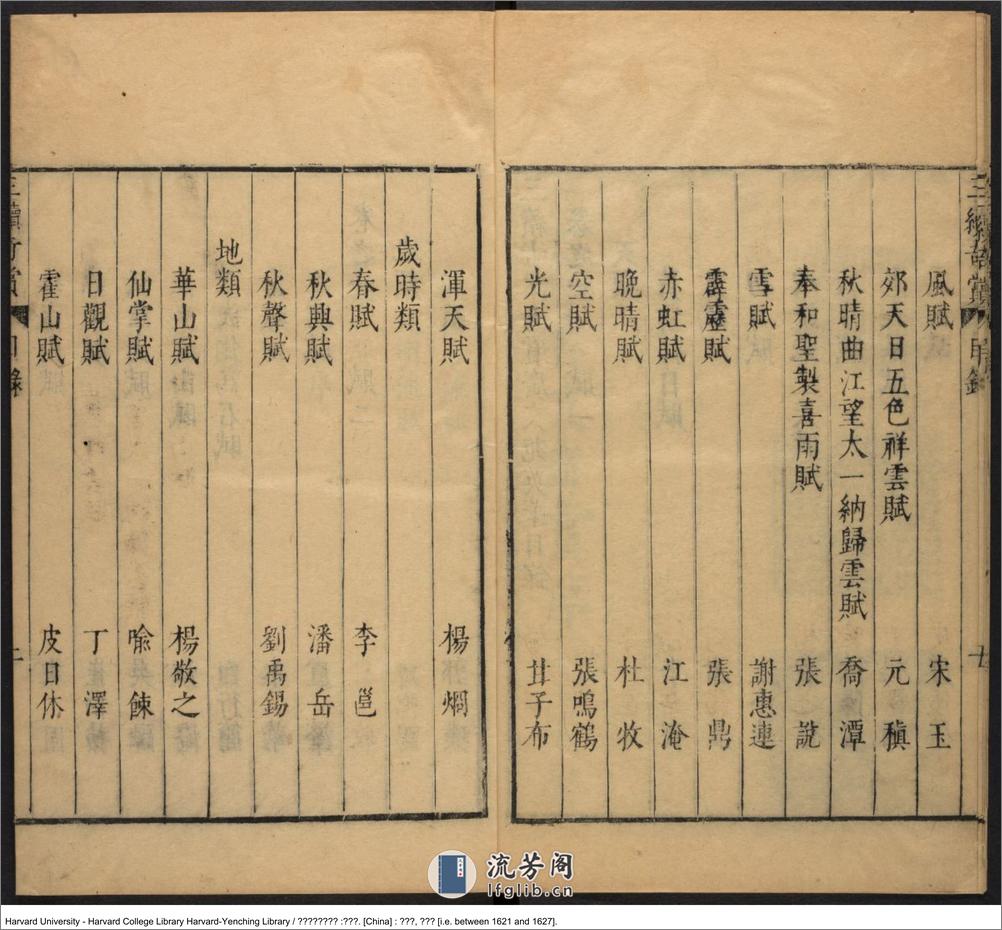 風賦 宋玉
郊天日五色祥雲賦 元稹
秋晴曲江望太一納歸雲賦 喬潭
奉和聖製喜雨賦 張說
雪賦 謝惠連
霹靂賦 張鼎
赤虹賦 江淹
晚晴賦 杜牧
空賦 張鳴鶴
光賦 茸子布
渾天賦 楊烱
歲時類
春賦 李邕
秋興賦 潘岳
秋聲賦 劉禹錫
地類
華山賦 楊敬之
仙掌賦 喻餗
日觀賦 丁澤
霍山賦 皮日休
流芳阁
lfglib.cn
Harvard University - Harvard College Library Harvard-Yenching Library / ???????? :???. [China] : ???, ??? [i.e. between 1621 and 1627].